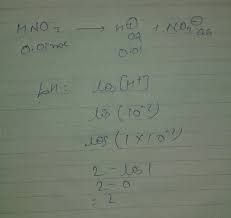 HNO3 → H⊕ + NO3⊖ aq
0.01 mol aq
0.01
pH: log[H+]
log (10⁻²)
log (1×10⁻²)
2 - log 1
2 - 0
= 2